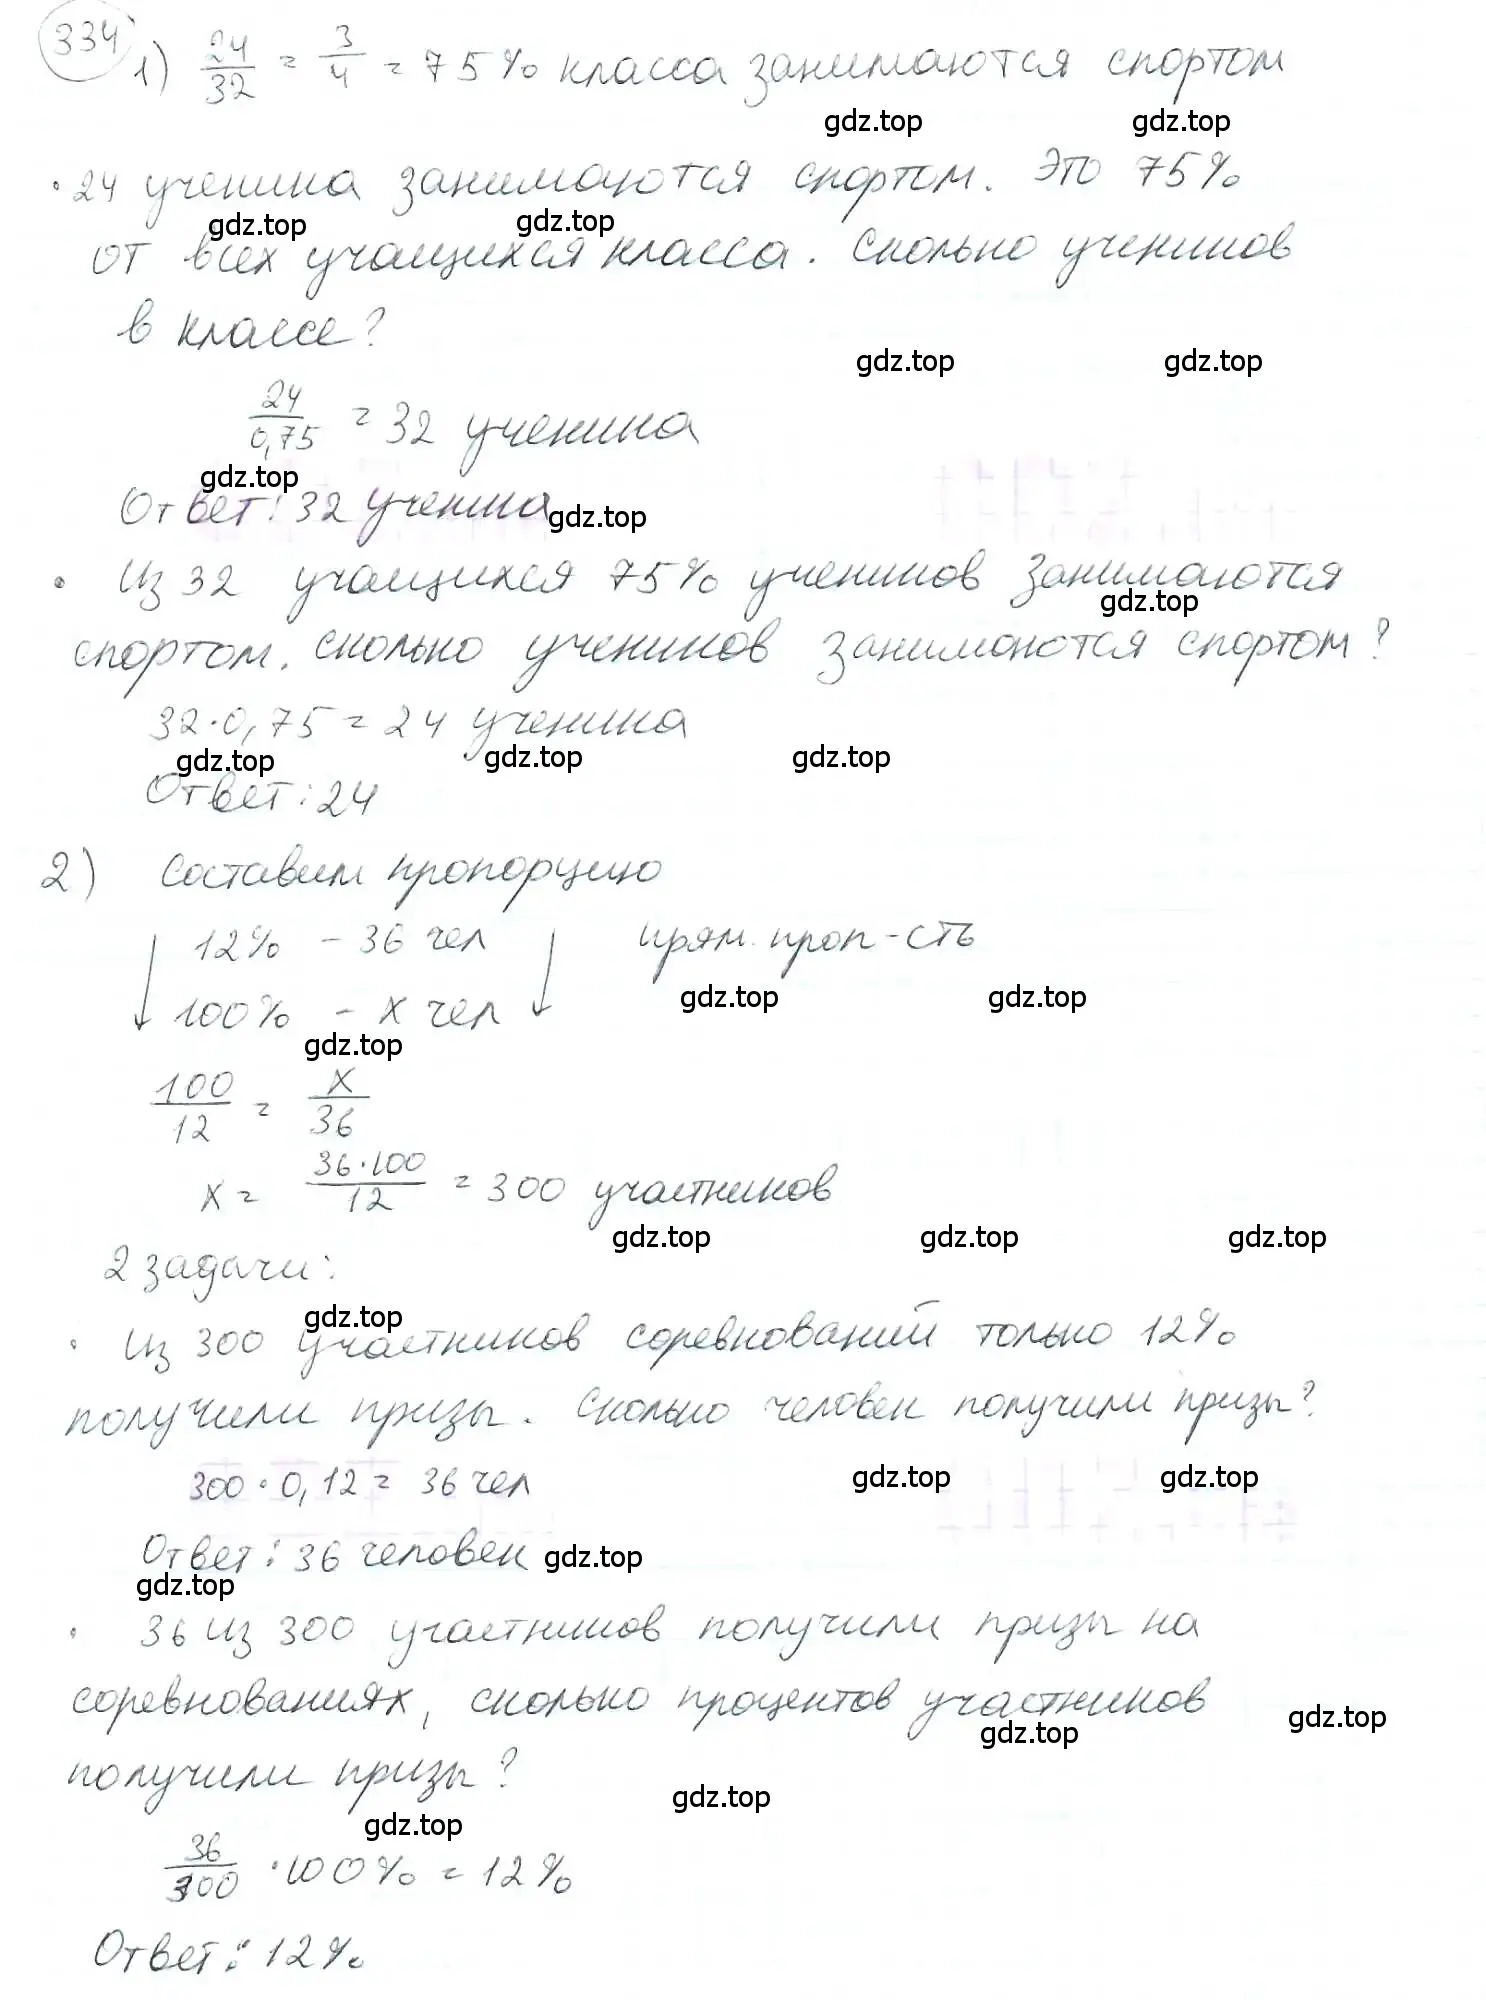 334
1) 24/32 = 3/4 = 75% класса занимаются спортом
gdz.top gdz.top
• 24 ученика занимаются спортом. Это 75%
gdz.top gdz.top
от всех учащихся класса. Сколько учеников
в классе?
gdz.top gdz.top
24/0,75 = 32 ученика
gdz.top
Ответ: 32 ученика
gdz.top
• Из 32 учащихся 75% учеников занимаются
gdz.top
спортом. Сколько учеников занимаются спортом?
32·0,75 = 24 ученика
gdz.top gdz.top gdz.top
Ответ: 24
2) Составим пропорцию
↓ 12% - 36 чел ↓ прям. проп-сть
gdz.top gdz.top
100% - x чел
gdz.top
100/12 = x/36
x = 36·100/12 = 300 участников
gdz.top gdz.top gdz.top
2 задачи:
gdz.top
• Из 300 участников соревнований только 12%
получили призы. Сколько человек получили призы?
300·0,12 = 36 чел
gdz.top gdz.top
Ответ: 36 человек
gdz.top
gdz.top
• 36 из 300 участников получили призы на
соревнованиях, сколько процентов участников
gdz.top gdz.top
получили призы?
gdz.top
gdz.top
36/300 · 100% = 12%
Ответ: 12%.